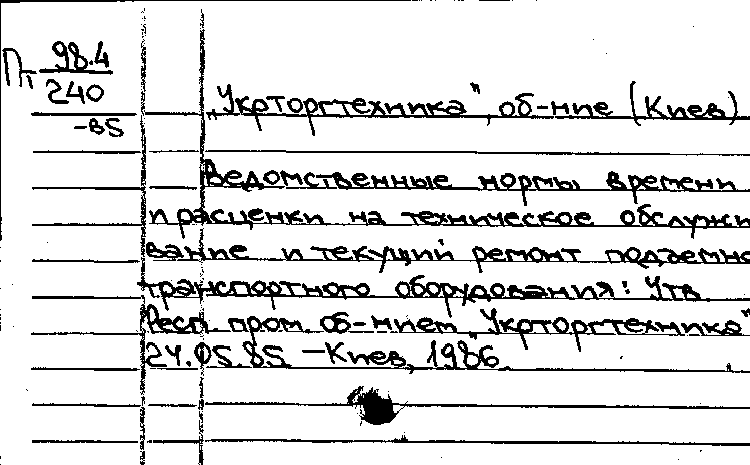 Пт 98.4
240
-85
„Укрторгтехника", об-ние (Киев)
Ведомственные нормы времени
и расценки на техническое обслужи
вание и текущий ремонт подъемно
транспортного оборудования: Утв.
Респ. пром. об-нием „Укрторгтехника"
24.05.85. —Киев, 1986.